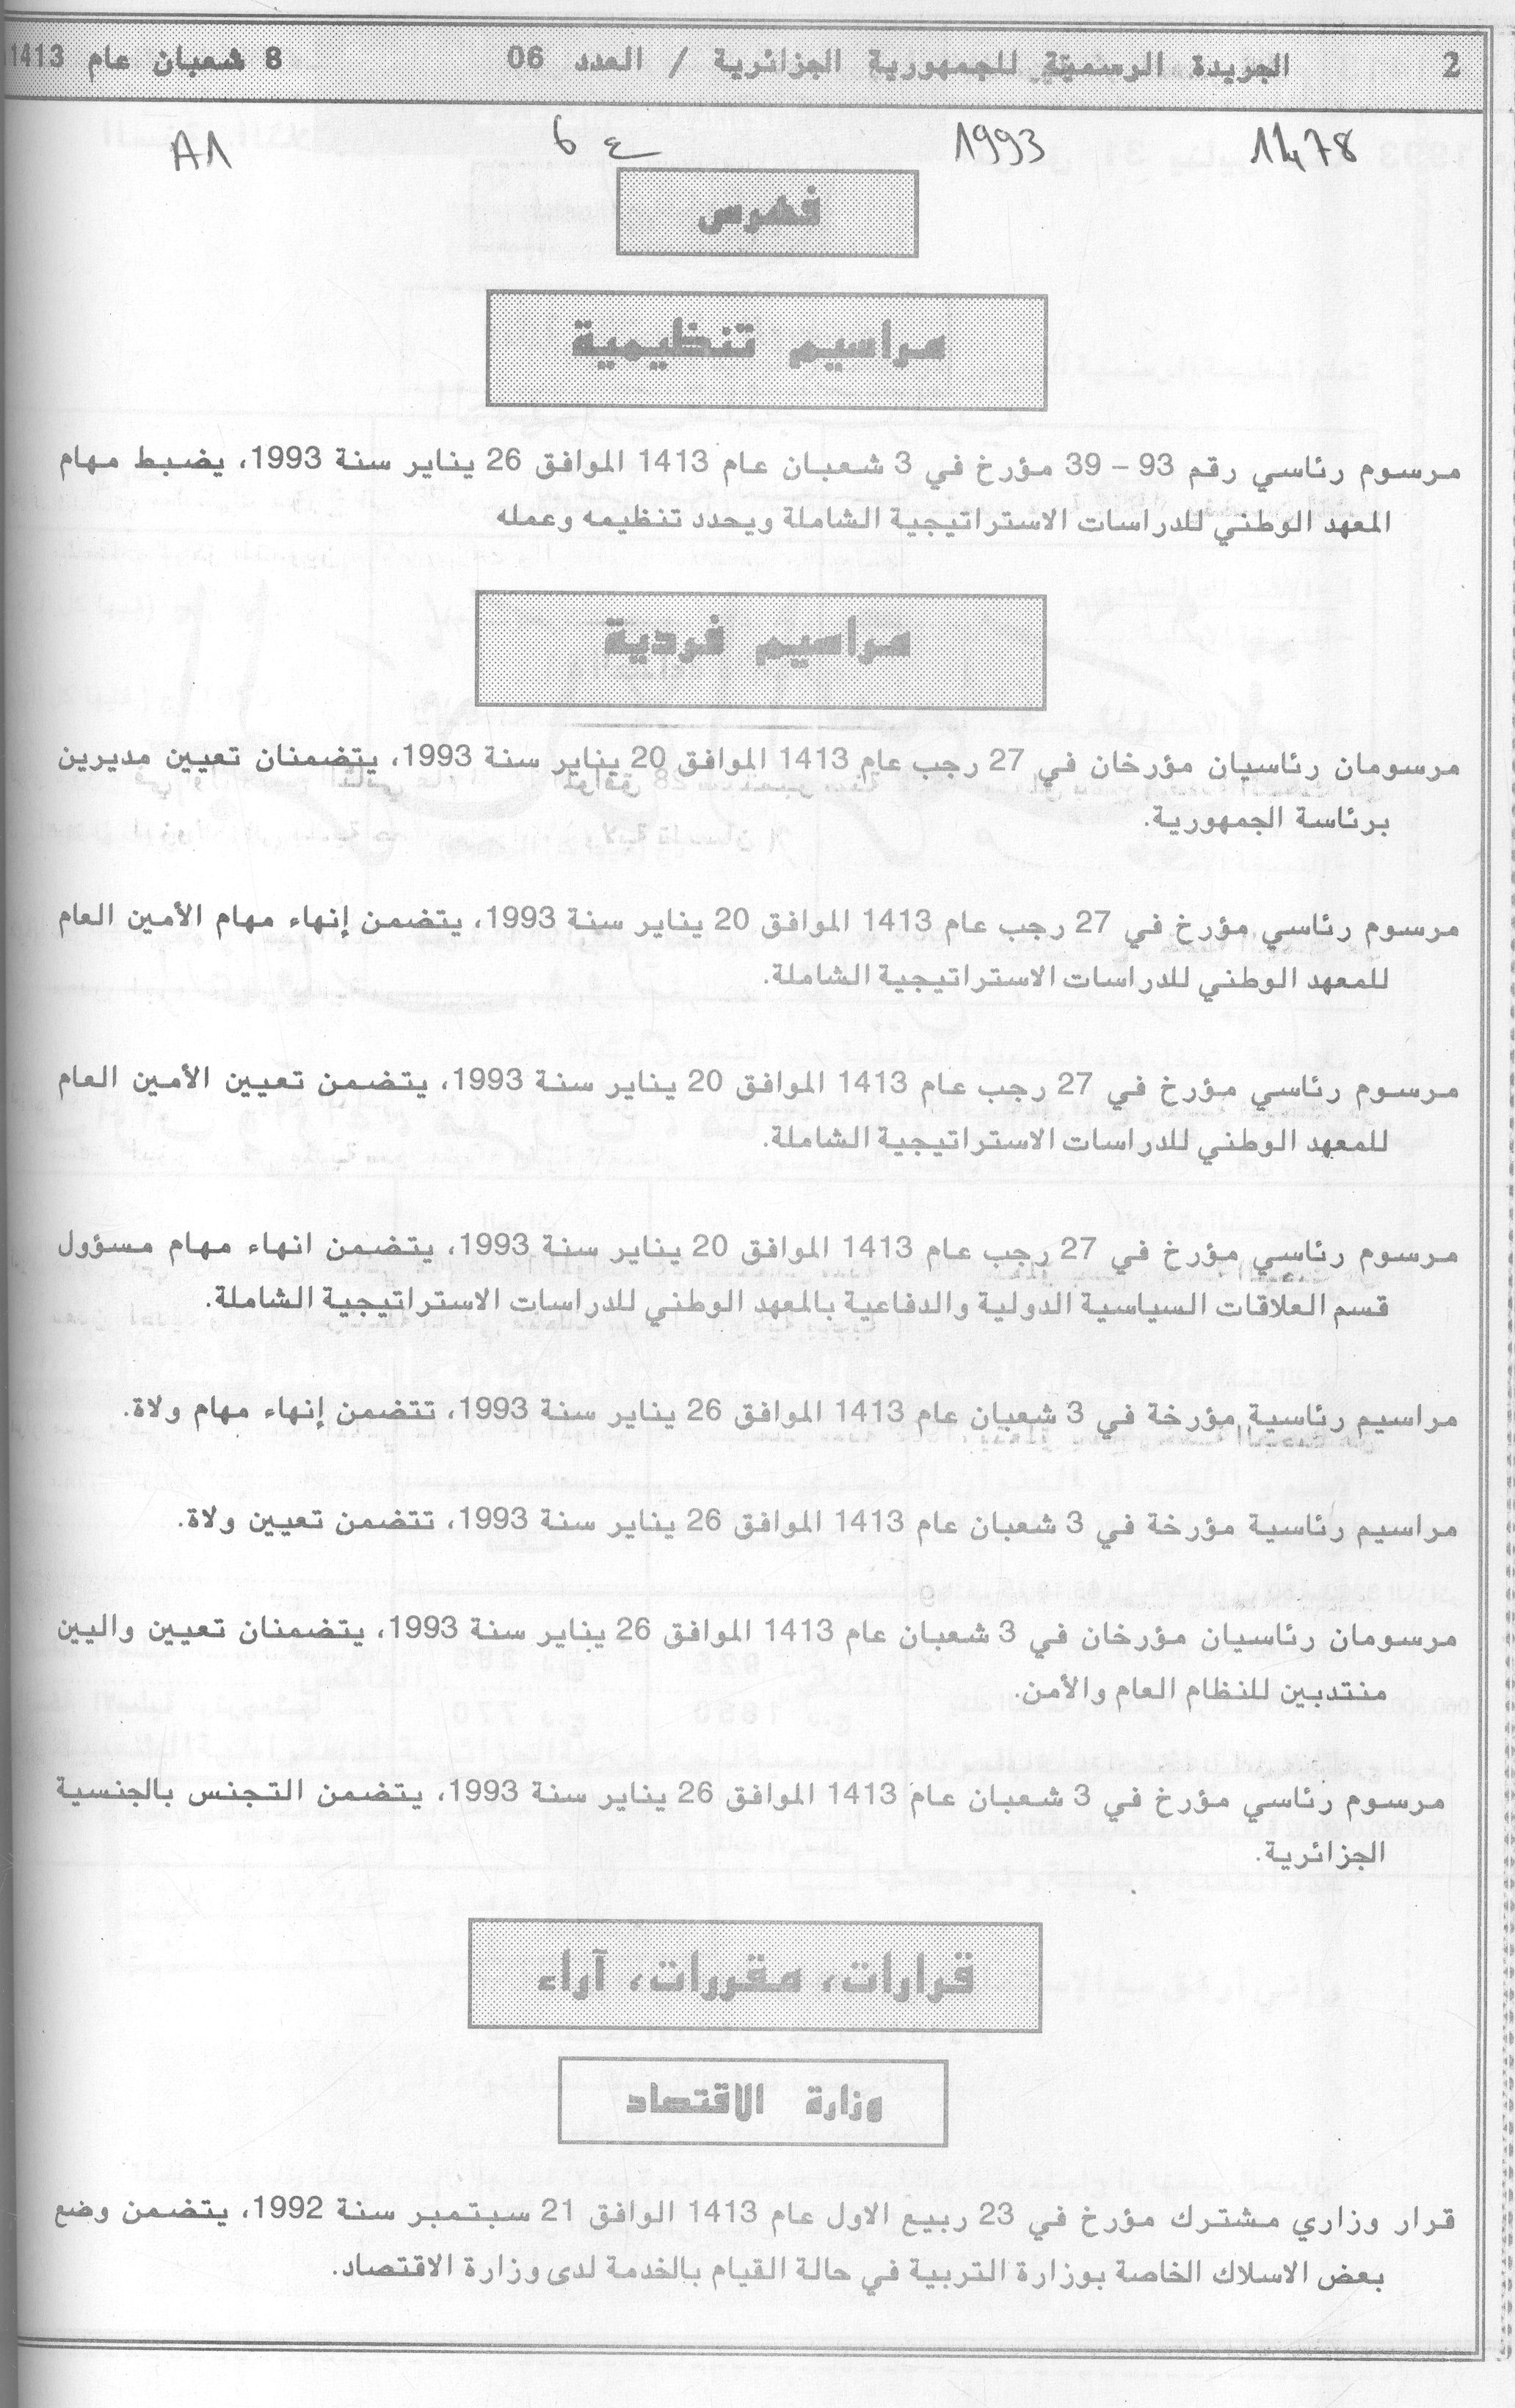 2 الجريدة الرسمية للجمهورية الجزائرية / العدد 06 8 شعبان عام 1413
1478 1993 ع 6 A1
فهرس
مراسيم تنظيمية
مرسوم رئاسي رقم 93 – 39 مؤرخ في 3 شعبان عام 1413 الموافق 26 يناير سنة 1993، يضبط مهام
المعهد الوطني للدراسات الاستراتيجية الشاملة ويحدد تنظيمه وعمله
مراسيم فردية
مرسومان رئاسيان مؤرخان في 27 رجب عام 1413 الموافق 20 يناير سنة 1993، يتضمنان تعيين مديرين
برئاسة الجمهورية.
مرسوم رئاسي مؤرخ في 27 رجب عام 1413 الموافق 20 يناير سنة 1993، يتضمن إنهاء مهام الأمين العام
للمعهد الوطني للدراسات الاستراتيجية الشاملة.
مرسوم رئاسي مؤرخ في 27 رجب عام 1413 الموافق 20 يناير سنة 1993، يتضمن تعيين الأمين العام
للمعهد الوطني للدراسات الاستراتيجية الشاملة.
مرسوم رئاسي مؤرخ في 27 رجب عام 1413 الموافق 20 يناير سنة 1993، يتضمن انهاء مهام مسؤول
قسم العلاقات السياسية الدولية والدفاعية بالمعهد الوطني للدراسات الاستراتيجية الشاملة.
مراسيم رئاسية مؤرخة في 3 شعبان عام 1413 الموافق 26 يناير سنة 1993، تتضمن إنهاء مهام ولاة.
مراسيم رئاسية مؤرخة في 3 شعبان عام 1413 الموافق 26 يناير سنة 1993، تتضمن تعيين ولاة.
مرسومان رئاسيان مؤرخان في 3 شعبان عام 1413 الموافق 26 يناير سنة 1993، يتضمنان تعيين واليين
منتدبين للنظام العام والأمن.
مرسوم رئاسي مؤرخ في 3 شعبان عام 1413 الموافق 26 يناير سنة 1993، يتضمن التجنس بالجنسية
الجزائرية.
قرارات، مقررات، آراء
وزارة الاقتصاد
قرار وزاري مشترك مؤرخ في 23 ربيع الاول عام 1413 الوافق 21 سبتمبر سنة 1992، يتضمن وضع
بعض الاسلاك الخاصة بوزارة التربية في حالة القيام بالخدمة لدى وزارة الاقتصاد.